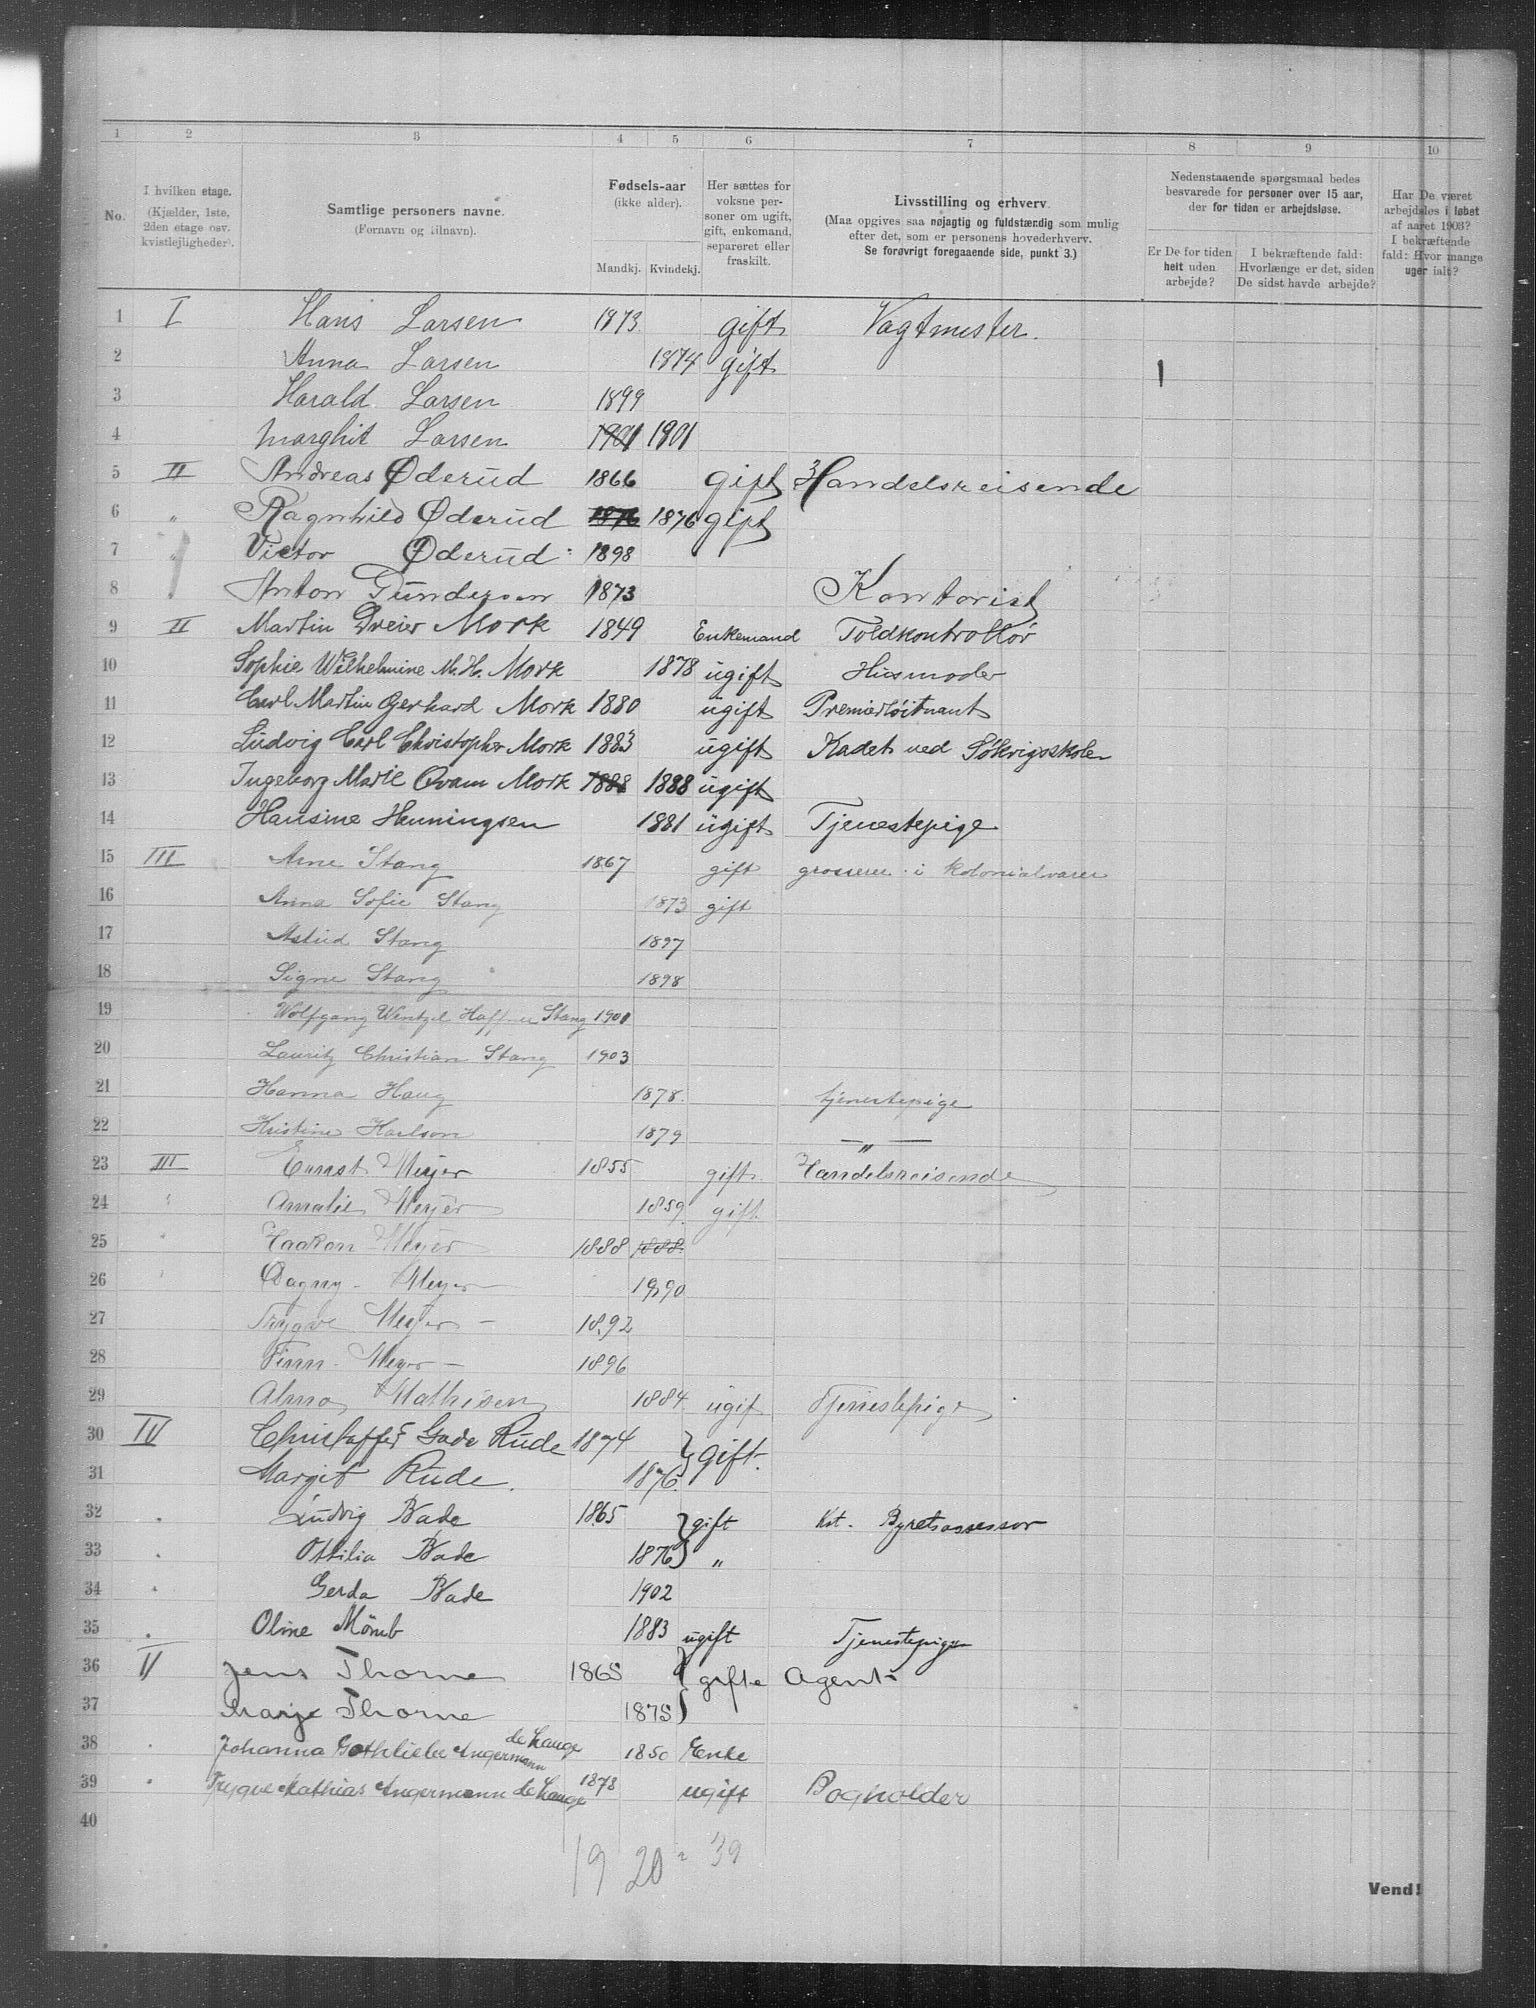 1 2 3 4 5 6 7 8 9 10
No.
I hvilken etage. (Kjælder, 1ste, 2den etage osv. kvistlejligheder).
Samtlige personers navne. (Fornavn og tilnavn).
Fødsels-aar (ikke alder).
Mandkj. Kvindekj.
Her sættes for voksne personer om ugift, gift, enkemand, separeret eller fraskilt.
Livsstilling og erhverv. (Maa opgives saa nøjagtig og fuldstændig som mulig efter det, som er personens hovederhverv. Se forøvrigt foregaaende side, punkt 3.)
Nedenstaaende spørgsmaal bedes besvarede for personer over 15 aar, der for tiden er arbejdsløse.
Er De for tiden helt uden arbejde?
I bekræftende fald: Hvorlænge er det, siden De sidst havde arbejde?
Har De været arbejdsløs i løbet af aaret 1903? I bekræftende fald: Hvor mange uger ialt?
1 I Hans Larsen 1873 gift Vagtmester.
2 Anna Larsen 1874 gift
3 Harald Larsen 1899
4 Marghit Larsen 1901 1901
5 II Andreas Øderud 1866 gift Handelsreisende
6 " Ragnhild Øderud 1876 1876 gift
7 " Victor Øderud 1898
8 Anton Gundersen 1873 Kontorist
9 II Martin Dreier Mork 1849 Enkemand Toldkontrollør
10 Sophie Wilhelmine M. H. Mork 1878 ugift Husmoder
11 Carl Martin Gerhard Mork 1880 ugift Premierløitnant
12 Ludvig Carl Christopher Mork 1883 ugift Kadet ved Søkrigsskolen
13 Ingeborg Marie Qvam Mork 1888 1888 ugift
14 Hansine Henningsen 1881 ugift Tjenestepige
15 III Arne Stang 1867 gift grosserer i kolonialvarer
16 Anna Sofie Stang 1873 gift
17 Astrid Stang 1897
18 Signe Stang 1898
19 Wolfgang Wentzel Haffner Stang 1901
20 Lauritz Christian Stang 1903
21 Hanna Haug 1878. tjenestepige
22 Kristine Karlson 1879 — " —
23 III Ernst Meyer 1855 gift. Handelsreisende
24 " Amalie Meyer 1859 gift.
25 " Haakon Meyer 1888 1888
26 " Dagny Meyer 1890
27 Trygve Meyer 1892
28 Finn Meyer 1896
29 Alma Mathisen 1884 ugif Tjenestepige
30 IV Christoffer Gade Rude 1874 } gift.
31 Margit Rude. 1876
32 . Ludvig Bade 1865 } gift Kst. Byretsassessor
33 . Ottilia Bade 1876 } "
34 . Gerda Bade 1902
35 . Oline Mömb 1883 ugift Tjenestepige
36 V Jens Thorne 1865 } gifte Agent
37 Marie Thorne 1875 }
38 . Johanna Gothliebe Angermann de Lange 1850 Enke
39 . Trygve Mathias Angermann de Lange 1878 ugift Bogholder
40
19 20 = 39
Vend!